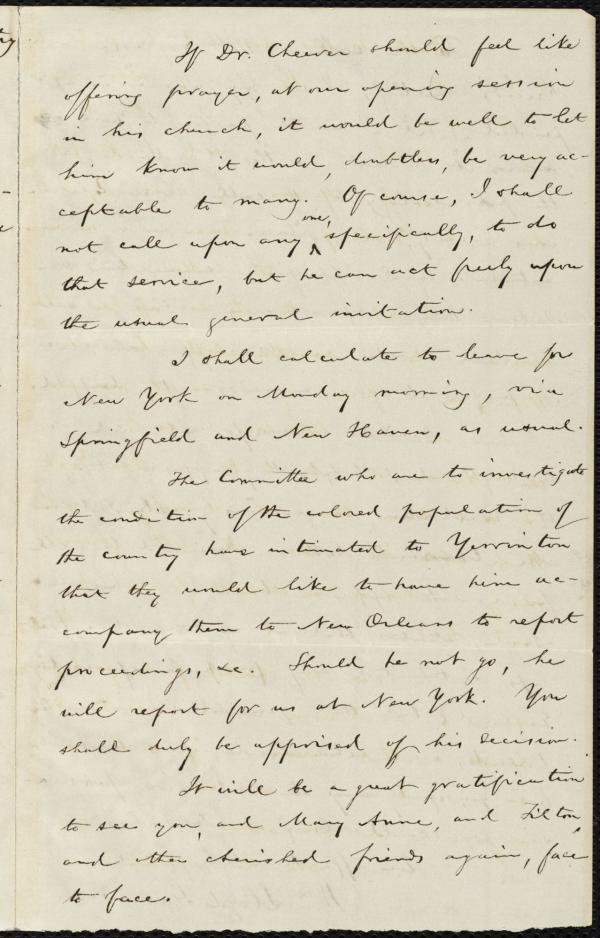 If Dr. Cheever should feel like
offering prayer, at our opening session
in his church, it would be well to let
him know it would, doubtless, be very ac-
ceptable to many. Of course, I shall
not call upon any one, specifically, to do
that service, but he can act freely upon
the usual general invitation.
I shall calculate to leave for
New York on Monday morning, via
Springfield and New Haven, as usual.
The Committee who are to investigate
the condition of the colored population of
the country have intimated to Yerrinton
that they would like to have him ac-
company them to New Orleans to report
proceedings, &c. Should he not go, he
will report for us at New York. You
shall duly be apprised of his decision.
It will be a great gratification
to see you, and Mary Anne, and Tilton,
and other cherished friends again, face
to face.